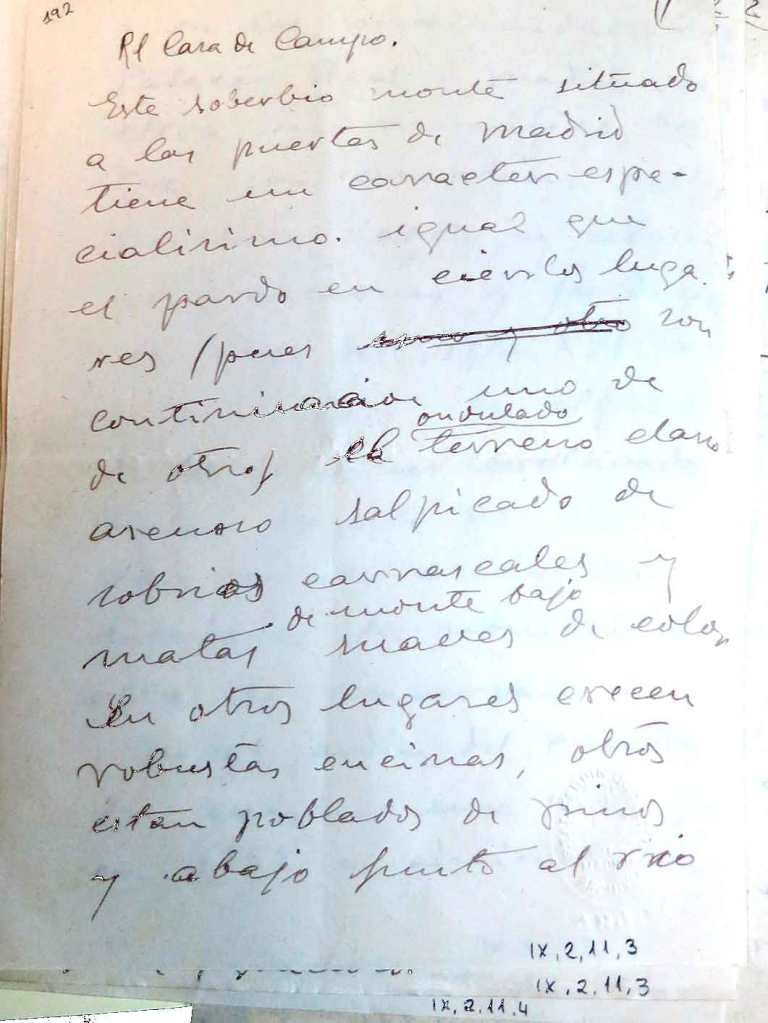 192
Rl Casa de Campo.
Este soberbio monte situado
a las puertas de Madrid
tiene un caracter espe-
cialisimo. igual que
el pardo en ciertos luga
res (pues uno y otro son
continuación uno de
ondulado
de otro) el terreno claro
arenoso salpicado de
sobrios carrascales y
de monte bajo
matas suaves de color
En otros lugares crecen
robustas encinas, otros
estan poblados de pinos
y abajo junto al rio
IX, 2, 11, 3
IX, 2, 11, 3
IX, 2, 11, 4